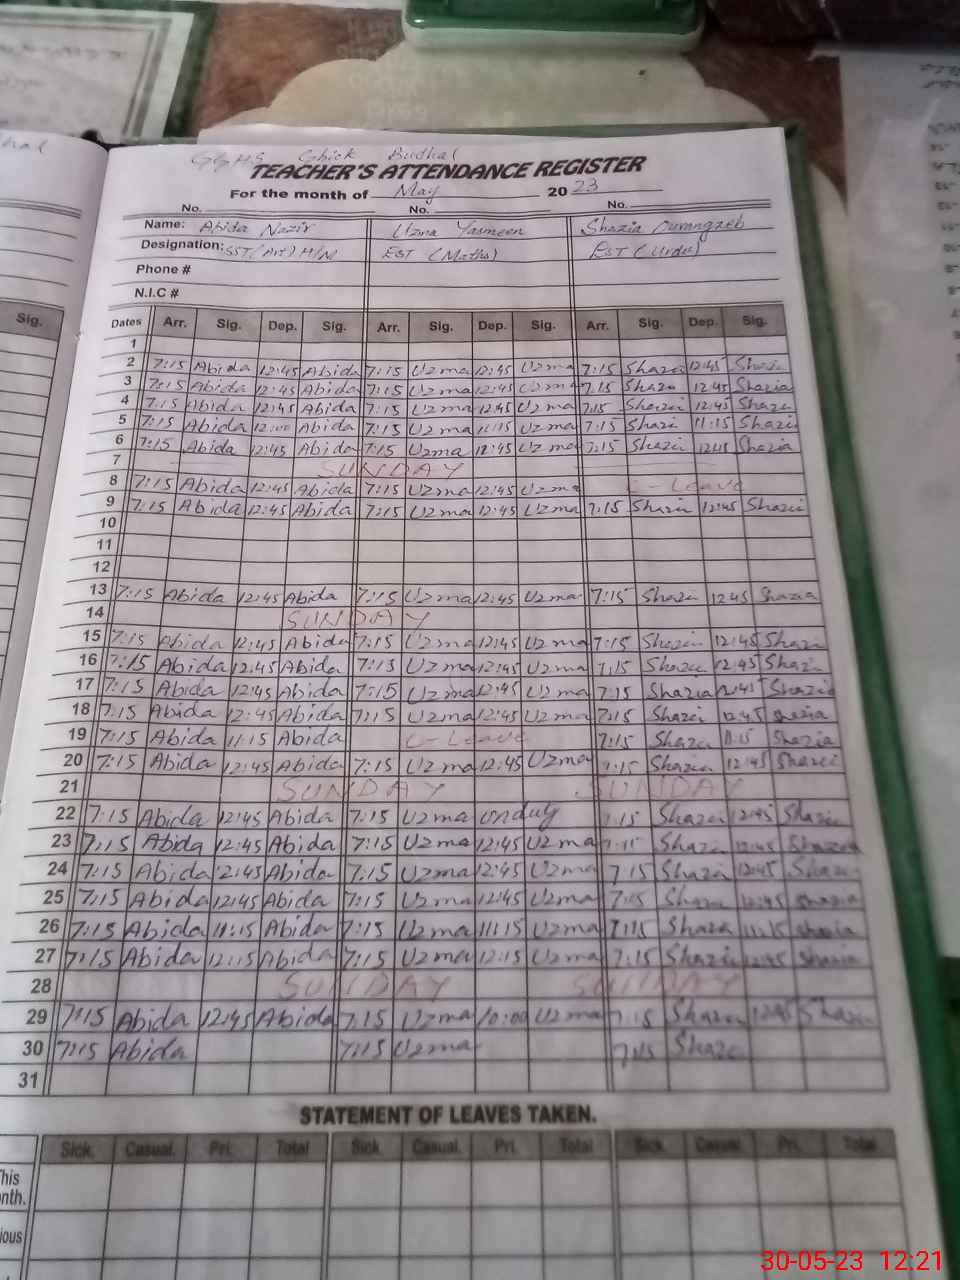 GGHS Chick Budhal
TEACHER'S ATTENDANCE REGISTER
For the month of May 2023
No. No. No.
Name: Abida Nazir Uzma Yasmeen Shazia Aurangzeb
Designation: SST (Art) H/M EST (Maths) EST (Urdu)
Phone #
N.I.C #
Sig. Dates Arr. Sig. Dep. Sig. Arr. Sig. Dep. Sig. Arr. Sig. Dep. Sig.
1
2 7:15 Abida 12:45 Abida 7:15 Uzma 12:45 Uzma 7:15 Shazia 12:45 Shazia
3 7:15 Abida 12:45 Abida 7:15 Uzma 12:45 Uzma 7:15 Shazia 12:45 Shazia
4 7:15 Abida 12:45 Abida 7:15 Uzma 12:45 Uzma 7:15 Shazia 12:45 Shazia
5 7:15 Abida 12:00 Abida 7:15 Uzma 11:15 Uzma 7:15 Shazia 11:15 Shazia
6 7:15 Abida 12:45 Abida 7:15 Uzma 12:45 Uzma 7:15 Shazia 12:45 Shazia
7 SUNDAY
8 7:15 Abida 12:45 Abida 7:15 Uzma 12:45 Uzma C-Leave
9 7:15 Abida 12:45 Abida 7:15 Uzma 12:45 Uzma 7:15 Shazia 12:45 Shazia
10
11
12
13 7:15 Abida 12:45 Abida 7:15 Uzma 12:45 Uzma 7:15 Shazia 12:45 Shazia
14 SUNDAY
15 7:15 Abida 12:45 Abida 7:15 Uzma 12:45 Uzma 7:15 Shazia 12:45 Shazia
16 7:15 Abida 12:45 Abida 7:15 Uzma 12:45 Uzma 7:15 Shazia 12:45 Shazia
17 7:15 Abida 12:45 Abida 7:15 Uzma 12:45 Uzma 7:15 Shazia 12:45 Shazia
18 7:15 Abida 12:45 Abida 7:15 Uzma 12:45 Uzma 7:15 Shazia 12:45 Shazia
19 7:15 Abida 11:15 Abida C-Leave 7:15 Shazia 11:15 Shazia
20 7:15 Abida 12:45 Abida 7:15 Uzma 12:45 Uzma 7:15 Shazia 12:45 Shazia
21 SUNDAY SUNDAY
22 7:15 Abida 12:45 Abida 7:15 Uzma onduty 7:15 Shazia 12:45 Shazia
23 7:15 Abida 12:45 Abida 7:15 Uzma 12:45 Uzma 7:15 Shazia 12:45 Shazia
24 7:15 Abida 12:45 Abida 7:15 Uzma 12:45 Uzma 7:15 Shazia 12:45 Shazia
25 7:15 Abida 12:45 Abida 7:15 Uzma 12:45 Uzma 7:15 Shazia 12:45 Shazia
26 7:15 Abida 11:15 Abida 7:15 Uzma 11:15 Uzma 7:15 Shazia 11:15 Shazia
27 7:15 Abida 12:15 Abida 7:15 Uzma 12:15 Uzma 7:15 Shazia 12:45 Shazia
28 SUNDAY SUNDAY
29 7:15 Abida 12:45 Abida 7:15 Uzma 10:00 Uzma 7:15 Shazia 12:45 Shazia
30 7:15 Abida 7:15 Uzma 7:15 Shazia
31
STATEMENT OF LEAVES TAKEN.
Sick. Casual. Pri. Total Sick. Casual. Pri. Total Sick. Casual. Pri. Total
30-05-23 12:21